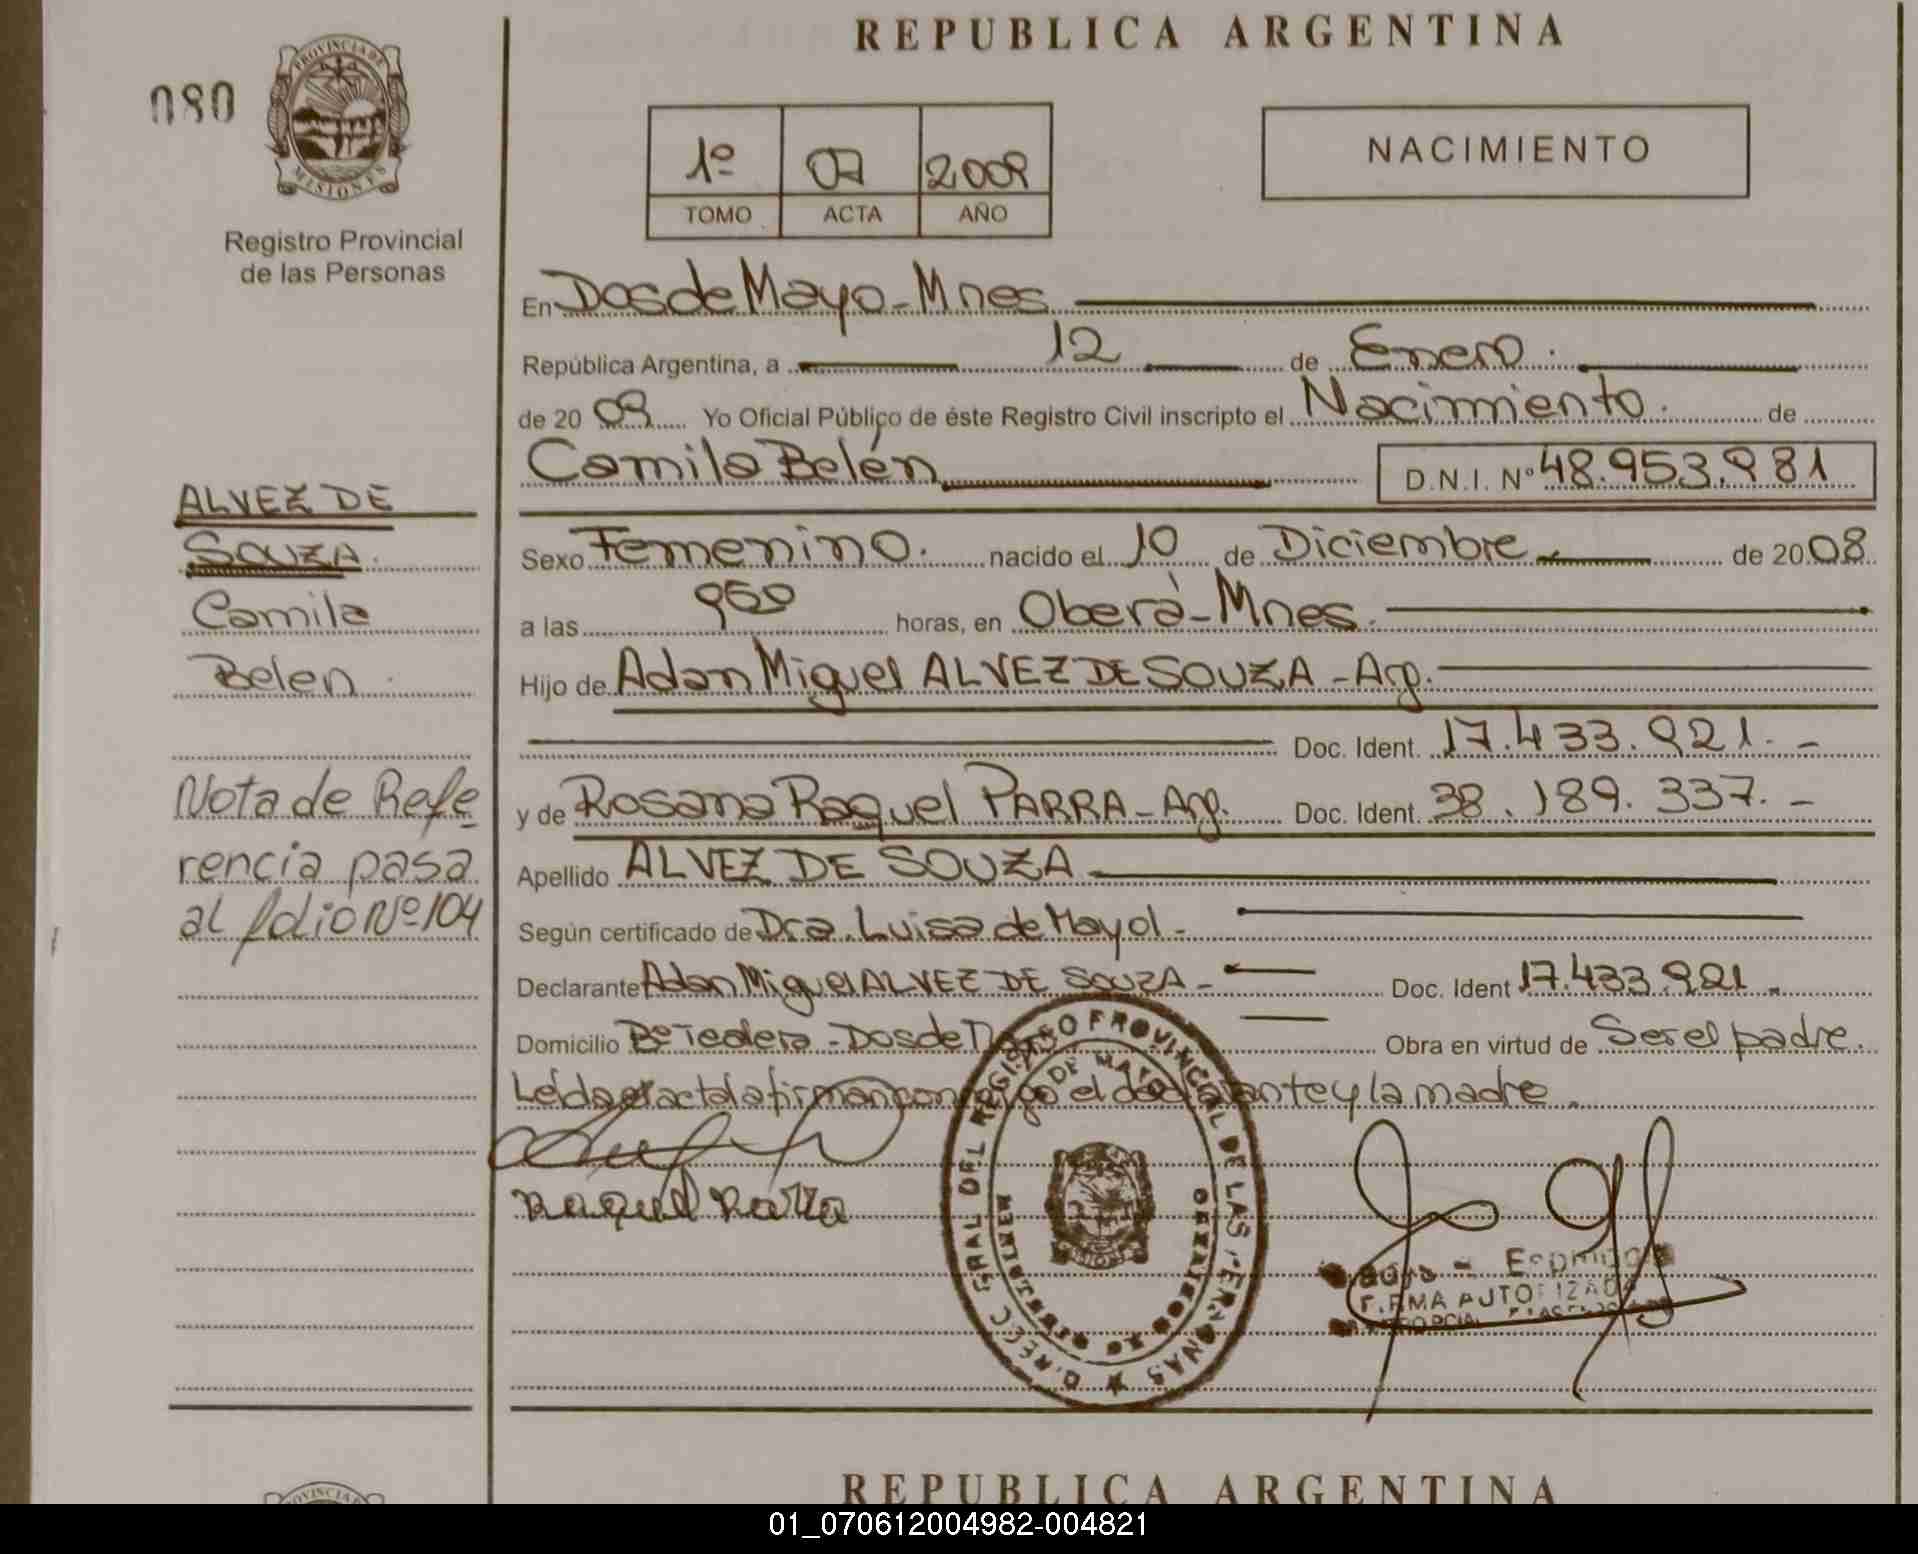 REPUBLICA ARGENTINA
080
PROVINCIA DE
MISIONES
Registro Provincial
de las Personas
1º 07 2009
TOMO ACTA AÑO
NACIMIENTO
En Dos de Mayo - Mnes
República Argentina, a 12 de Enero.
de 20 09 Yo Oficial Público de éste Registro Civil inscripto el Nacimiento. de
Camila Belén D.N.I. Nº 48.953.981
Sexo Femenino. nacido el 10 de Diciembre de 20 08
a las 950 horas, en Oberá - Mnes.
Hijo de Adan Miguel ALVEZ DE SOUZA - Arg.
Doc. Ident. 17.433.921. -
y de Rosana Raquel PARRA - Arg. Doc. Ident. 38.189.337. -
Apellido ALVEZ DE SOUZA
Según certificado de Dra. Luisa de Mayol -
Declarante Adan Miguel ALVEZ DE SOUZA - Doc. Ident 17.433.921 -
Domicilio Bº Tealera - Dos de Obra en virtud de Ser el padre.
Leída el acta la firman conmigo el declarante y la madre.
Raquel Parra
FIRMA AUTORIZADA
ALVEZ DE
SOUZA.
Camila
Belen.
Nota de Refe
rencia pasa
al folio Nº 104
DIREC GRAL DEL REGISTRO PROVINCIAL DE LAS PERSONAS
DE MAYO
REPUBLICA ARGENTINA
01_070612004982-004821